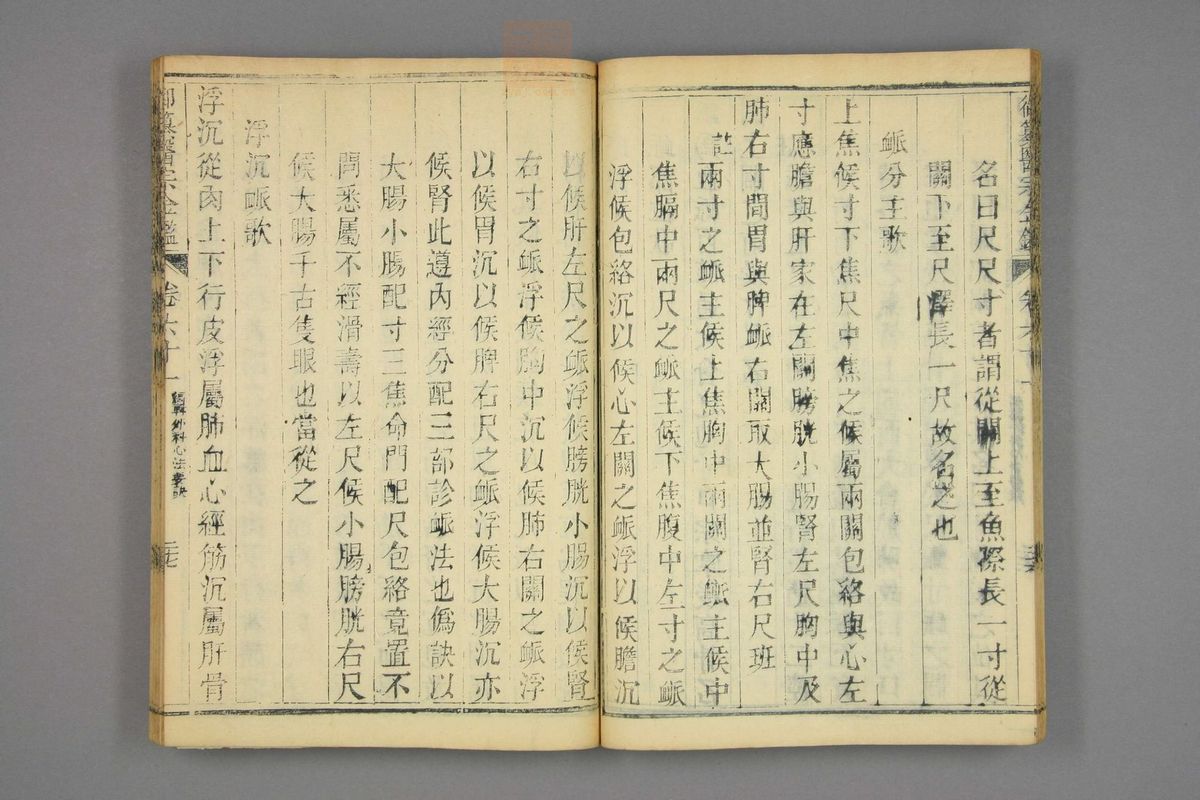 御纂醫宗金鑑 卷六十一
名曰尺尺寸者謂從關上至魚際長一寸從
關下至尺澤長一尺故名之也
脈分主歌
上焦候寸下焦尺中焦之候屬兩關包絡與心左
寸應膽與肝家在左關膀胱小腸腎左尺胸中及
肺右寸間胃與脾脈右關取大腸並腎右尺班
註兩寸之脈主候上焦胸中兩關之脈主候中
焦膈中兩尺之脈主候下焦腹中左寸之脈
浮候包絡沉以候心左關之脈浮以候膽沉
以候肝左尺之脈浮候膀胱小腸沉以候腎
右寸之脈浮候胸中沉以候肺右關之脈浮
以候胃沉以候脾右尺之脈浮候大腸沉亦
候腎此遵內經分配三部診脈法也僞訣以
大腸小腸配寸三焦命門配尺包絡竟置不
問悉屬不經滑壽以左尺候小腸膀胱右尺
候大腸千古隻眼也當從之
浮沉脈歌
浮沉從肉上下行皮浮屬肺血心經筋沉屬肝骨
御纂醫宗金鑑 卷六十一 編輯外科心法要訣 二七